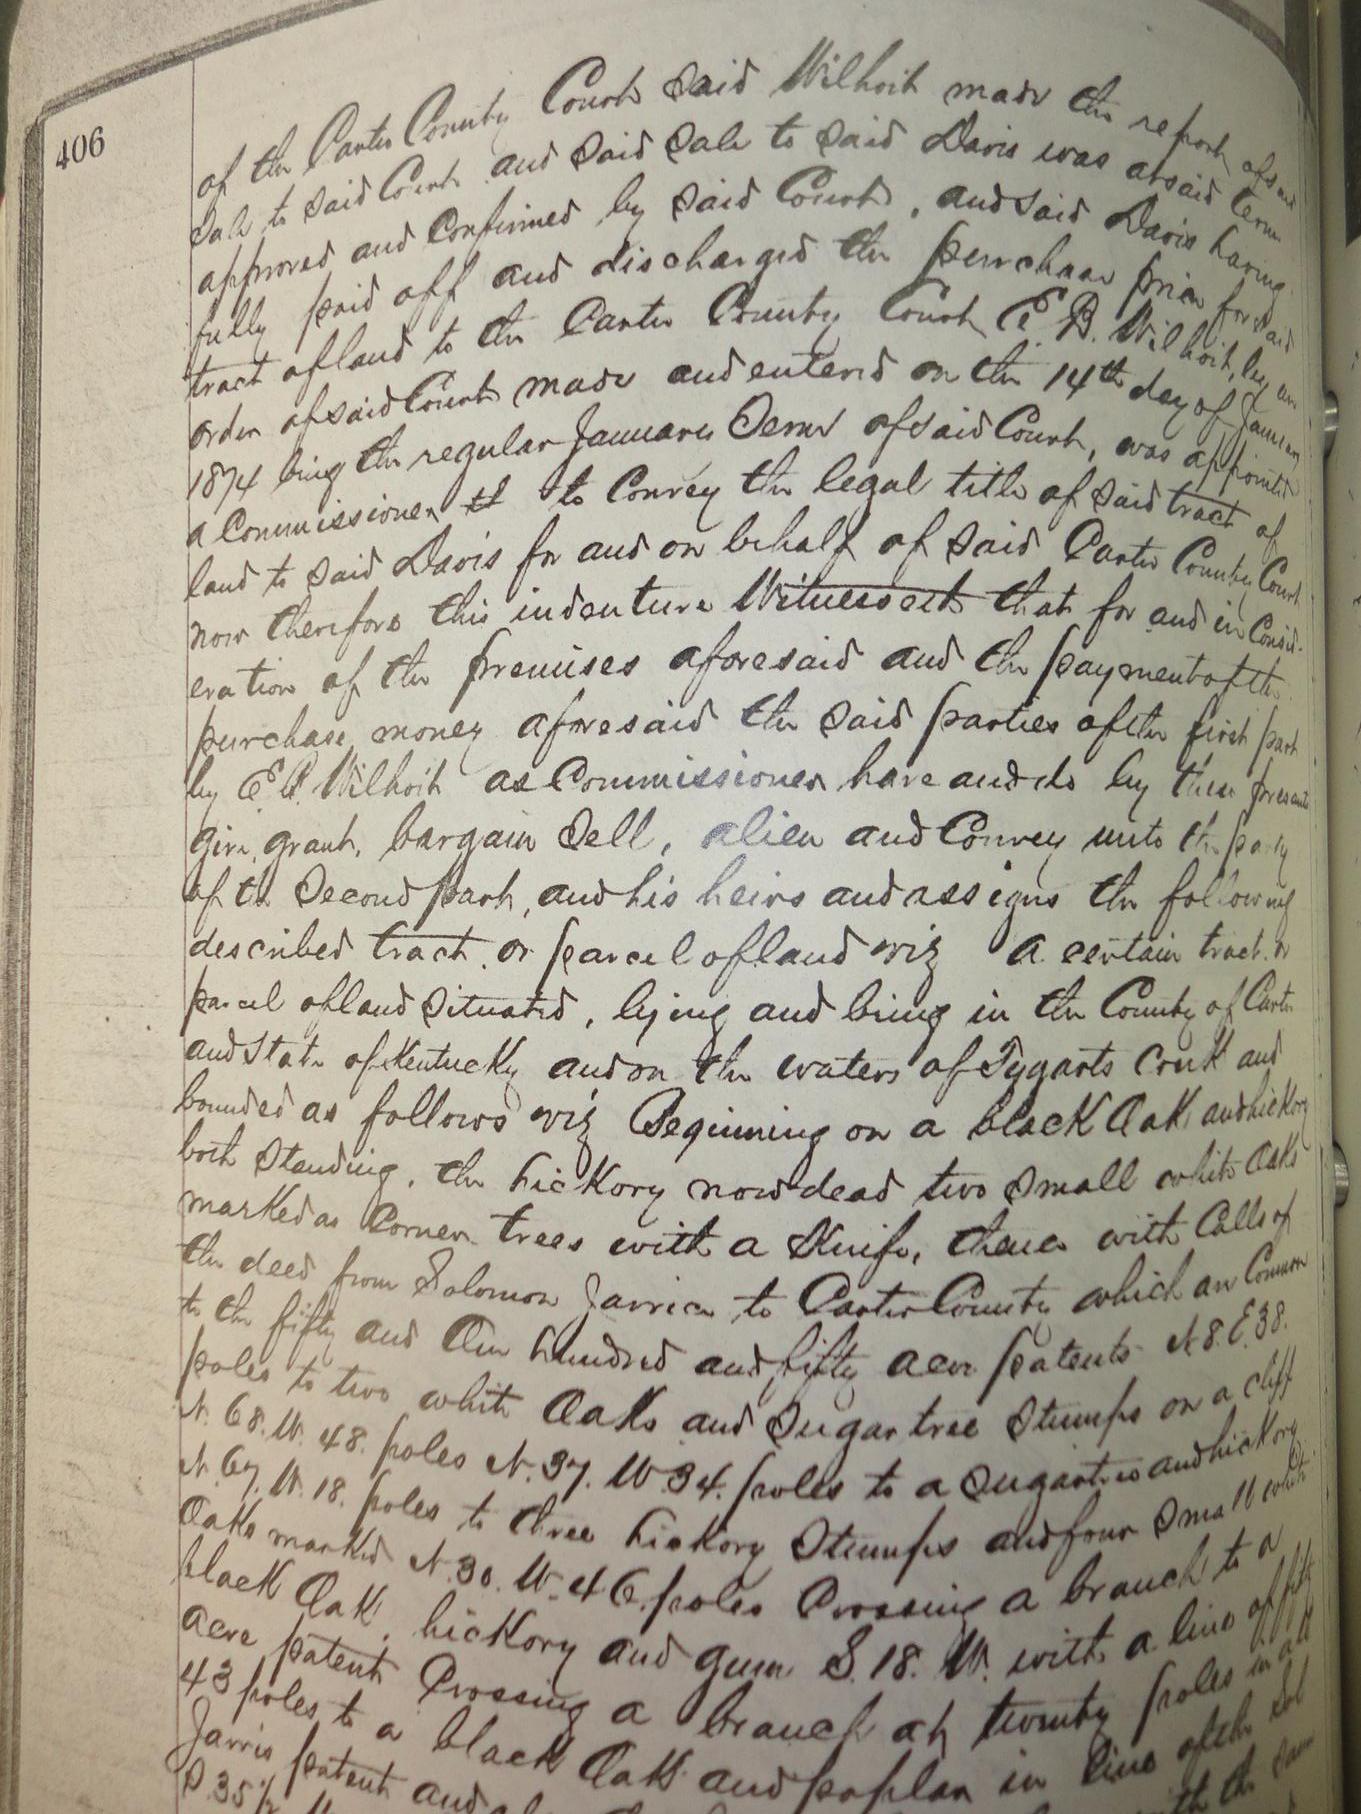 406
of the Carter County Court said Wilhoit made this report of said
Sale to said Court and said Sale to said Davis was at said term
approved and Confirmed by said Court, and said Davis having
fully paid off and discharged the purchase price for said
tract of land to the Carter County Court E. B. Wilhoit, by an
order of said Court made and entered on the 14th day of January
1874 being the regular January Term of said Court, was appointed
a Commissioner to Convey the legal title of said tract of
land to said Davis for and on behalf of said Carter County Court
now therefore this indenture Witnesseth that for and in Consid-
eration of the premises aforesaid and the payment of the
purchase money aforesaid the said parties of the first part
by E B. Wilhoit as Commissioner have and do by these presents
give, grant, bargain Sell, alien and Convey unto the party
of the Second part, and his heirs and assigns the following
described tract or parcel of land viz A certain tract or
parcel of land Situated, lying and being in the County of Carter
and State of Kentucky and on the waters of Tygarts Creek and
bounded as follows viz Beginning on a black Oak and hickory
both Standing, the hickory now dead two Small white Oaks
marked as Corner trees with a Knife, thence with Calls of
the deed from Solomon Jarvice to Carter County which are Common
to the fifty and One hundred and fifty acre patents N. 8. E. 38.
poles to two white Oaks and Sugar tree Stumps on a cliff
N. 68. W. 48. poles N. 37. W 34. poles to a Sugartree and hickory
N. 67. W. 18. poles to three hickory Stumps and four Small white
Oaks marked N. 30. W. 46. poles Crossing a branch to a
black Oak, hickory and gum S. 18. W. with a line of fifty
acre patent Crossing a branch at twenty poles in all
43 poles to a black Oak and poplar in line of the Sol
Jarvis patent and with the same
S. 35½